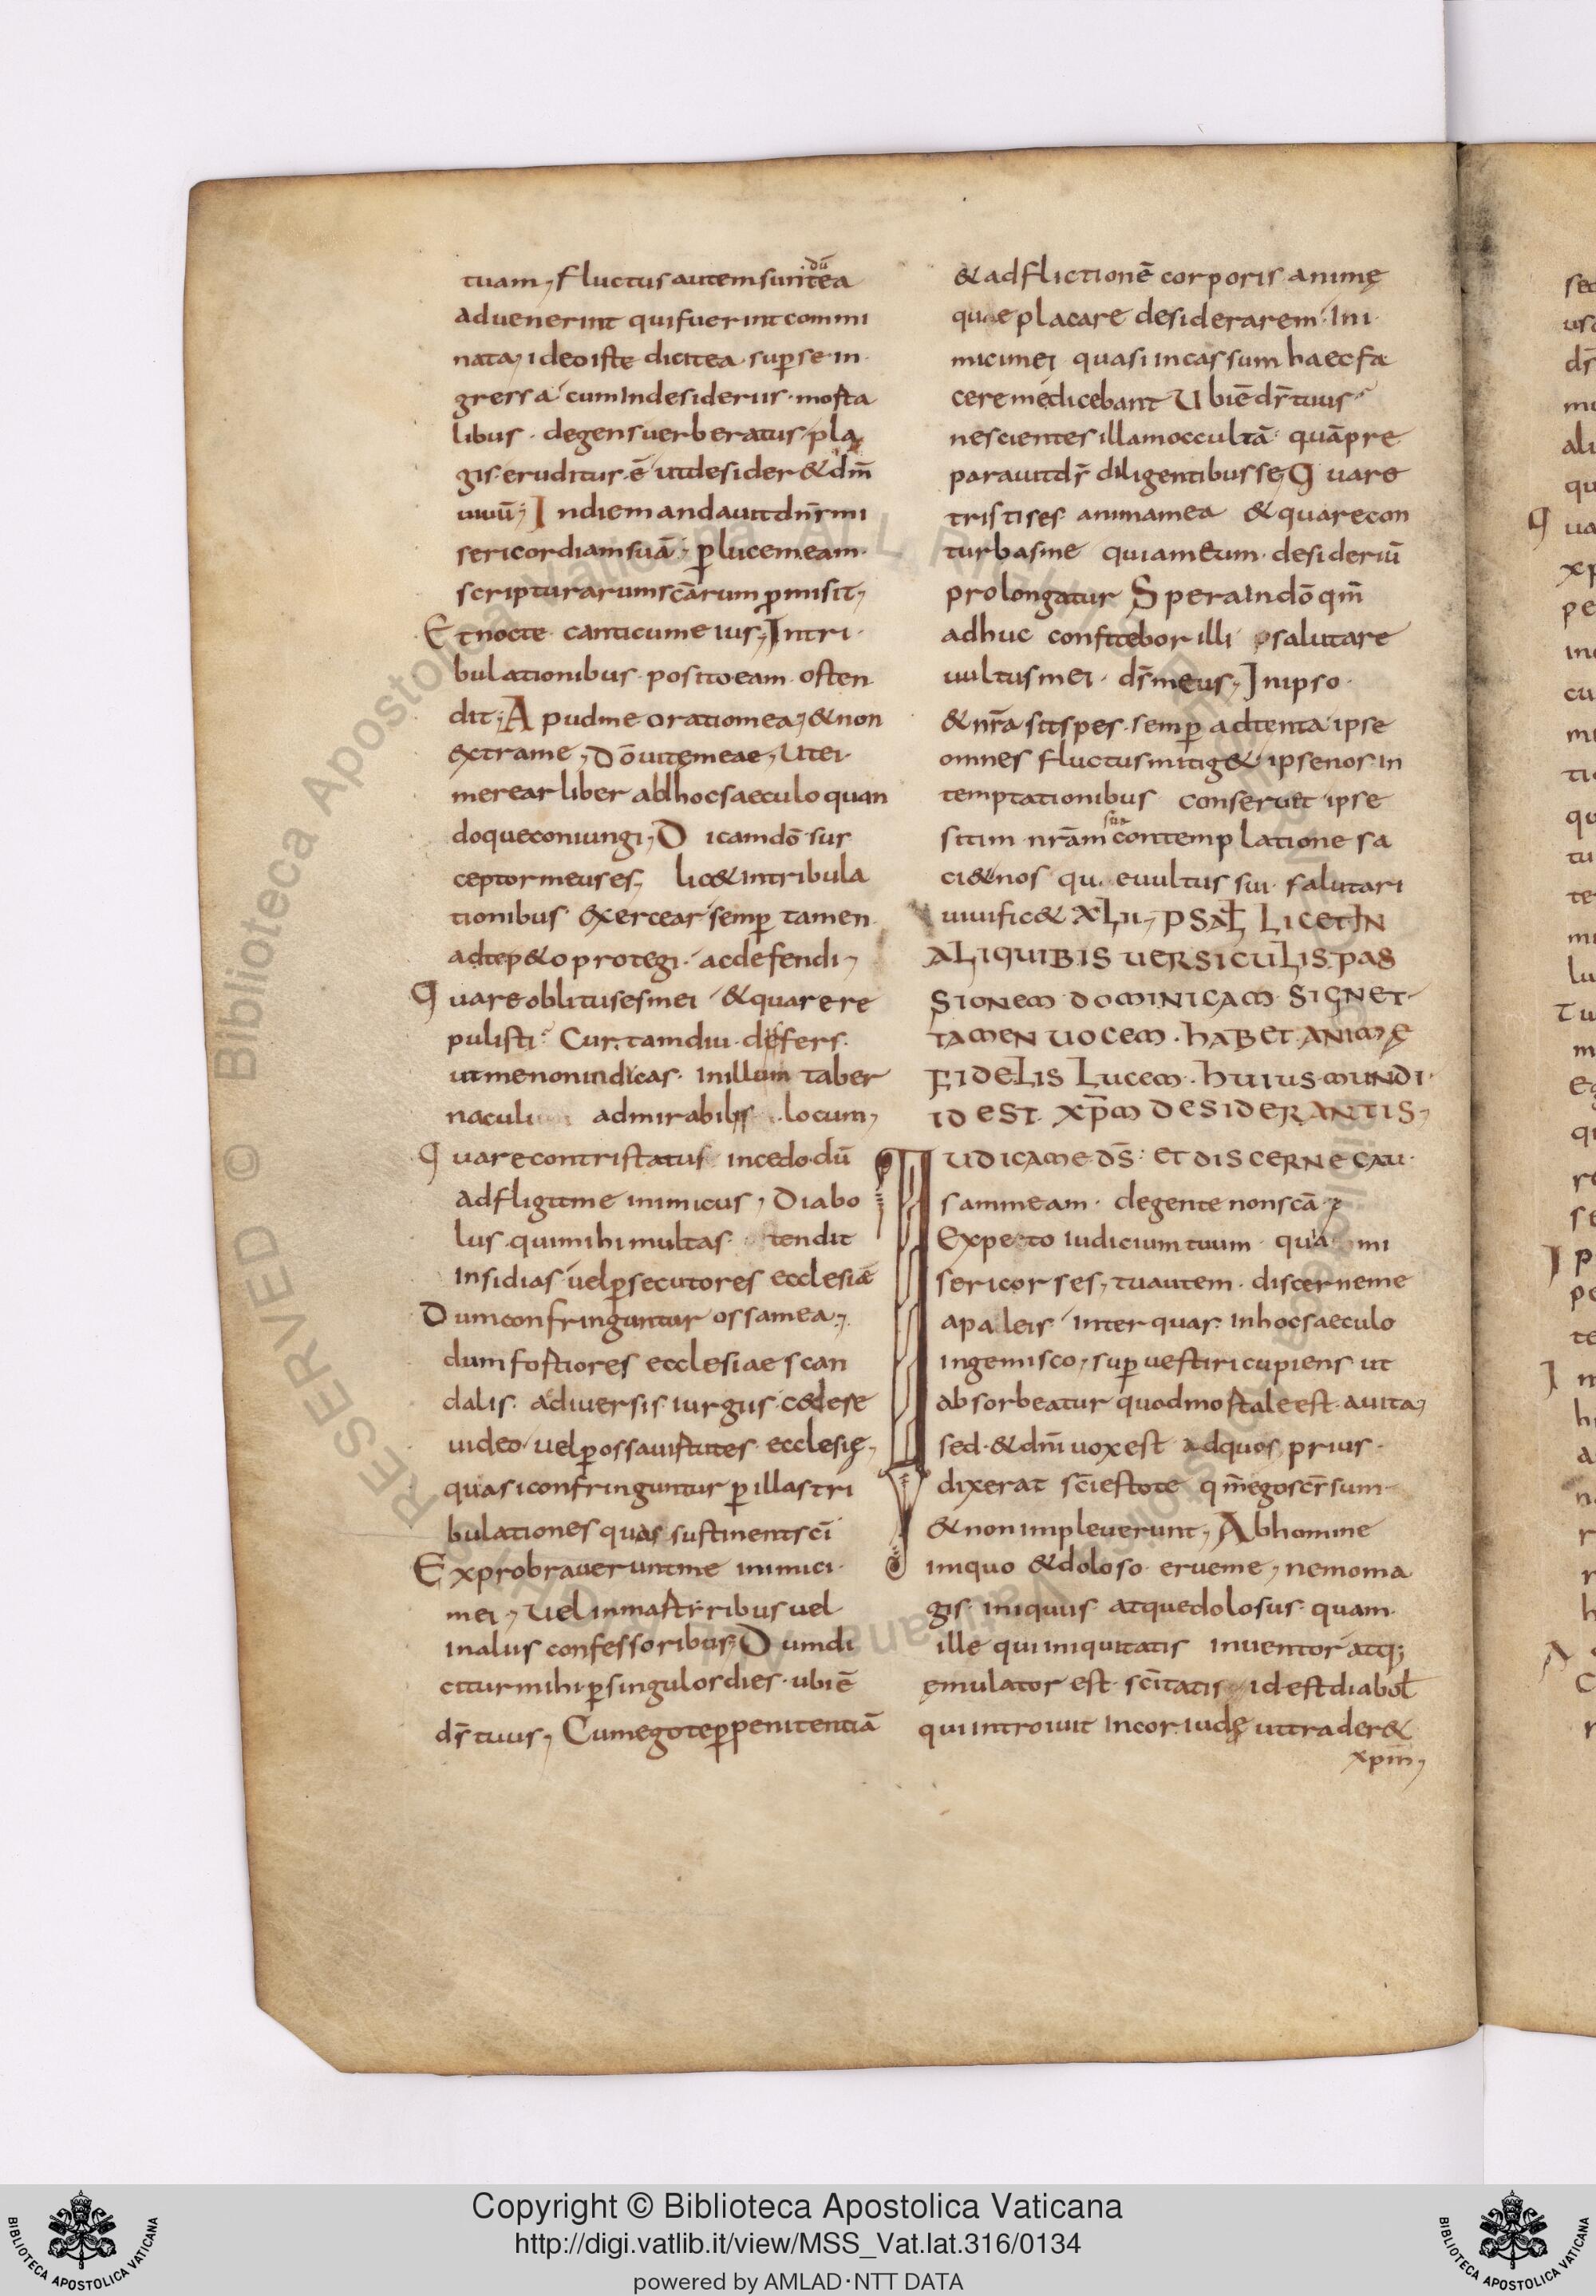 tuam, fluctus autem sunt dū ea
aduenerint qui fuerint commi
nata, ideo iste dicit ea sup̄ se in
gressa cum in desideriis morta
libus degens uerberatus pla
gis eruditur ē ut desider& dn̄m
uiuū; In die mandauit dn̄s mi
sericordiam suā; p̄ lucem eam
scripturarum scārum p̄misit,
Et nocte canticum eius, In tri
bulationibus posito eam osten
dit; Apud me oratio mea, & non
extra me, Dō uitę meae, Ut ei
merear liber ab hoc saeculo quan
doque coniungi, Dicam dō sus
ceptor meus es, lic& in tribula
tionibus exercear semp̄ tamen
ad te p&o protegi ac defendi,
Quare oblitus es mei & quare re
pulisti? Cur tamdiu defers
ut me non indicas in illum taber
naculi admirabilis locum,
Quare contristatus incedo dū
adfligit me inimicus, Diabo
lus qui mihi multas tendit
insidias uel p̄secutores ecclesiae
Dum confringuntur ossa mea,
dum fortiores ecclesiae scan
dalis aduersis iurgiis cedere
uideo uel p̄ ossa uirtutes ecclesię,
quasi confringuntur p̄ illas tri
bulationes quas sustinent scī
Exprobrauerunt me inimici
mei, Uel in martyribus uel
in aliis confessoribus, Dum di
citur mihi p̄ singulos dies ubi ē
ds̄ tuus, Cum ego te p̄ penitentiā
& adflictionē corporis animę
quae placare desiderarem Ini
mici mei quasi in cassum haec fa
cere me dicebant Ubi ē ds̄ tuus?
nescientes illam occultā quā pre
parauit ds̄ diligentibus se, Quare
tristis es anima mea & quare con
turbas me quia meum desideriū
prolongatur Spera in dō qm̄
adhuc confitebor illi salutare
uultus mei ds̄ meus, In ipso
& nr̄a sit spes semp̄ adtenta ipse
omnes fluctus mitig& ipse nos in
temptationibus conseruet ipse
sitim nrām sua contemplatione sa
ci& nos que uultus sui salutari
uiuific& XLII, PSAL LICET IN
ALIQUIBIS UERSICULIS PAS
SIONEM DOMINICAM SIGNET
TAMEN UOCEM HABET ANIMĘ
FIDELIS LUCEM HUIUS MUNDI
ID EST XP̄M DESIDERANTIS,
IUDICA ME DS̄ ET DISCERNE CAU
sam meam de gente non scā,
Expecto iudicium tuum quia mi
sericors es, tu autem discerne me
a paleis inter quas in hoc saeculo
ingemisco, sup̄uestiri cupiens ut
absorbeatur quod mortale est a uita,
sed & dn̄i uox est ad quos prius
dixerat scī estote qm̄ ego scs̄ sum
& non impleuerunt, Ab homine
iniquo & doloso erue me, nemo ma
gis iniquus atque dolosus quam
ille qui iniquitatis inuentor atq;
ęmulator est scītatis id est diabol
qui introiuit in cor iudę ut trader&
xp̄m,
Copyright © Biblioteca Apostolica Vaticana
http://digi.vatlib.it/view/MSS_Vat.lat.316/0134
powered by AMLAD·NTT DATA